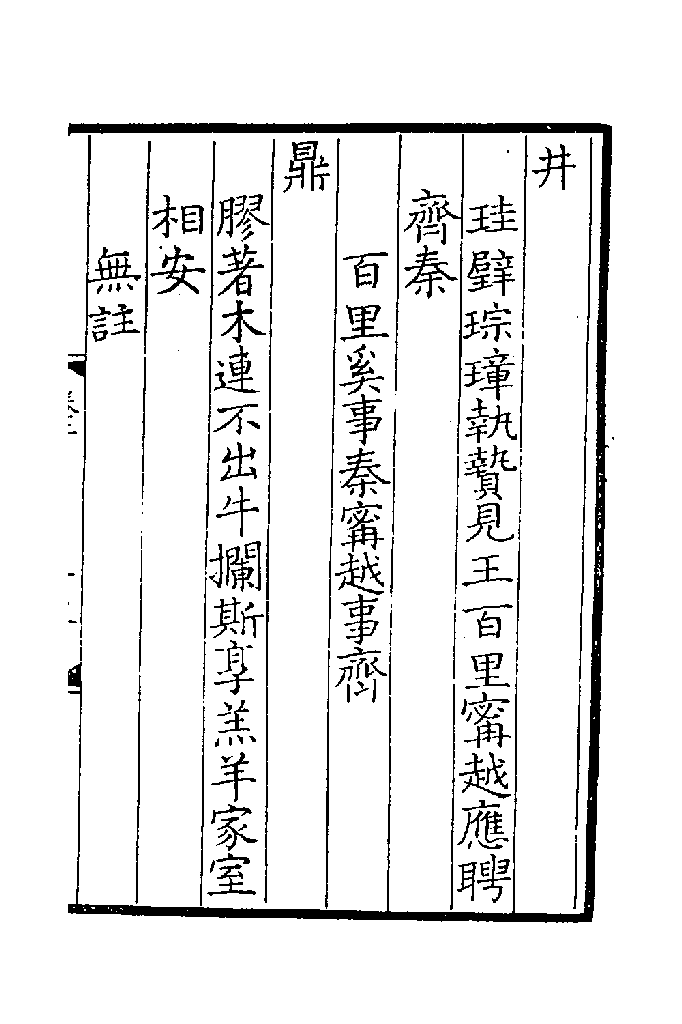 井
珪璧琮璋執贄見王百里甯越應聘
齊秦
百里奚事秦甯越事齊
鼎
膠著木連不出牛攔斯享羔羊家室
相安
無註